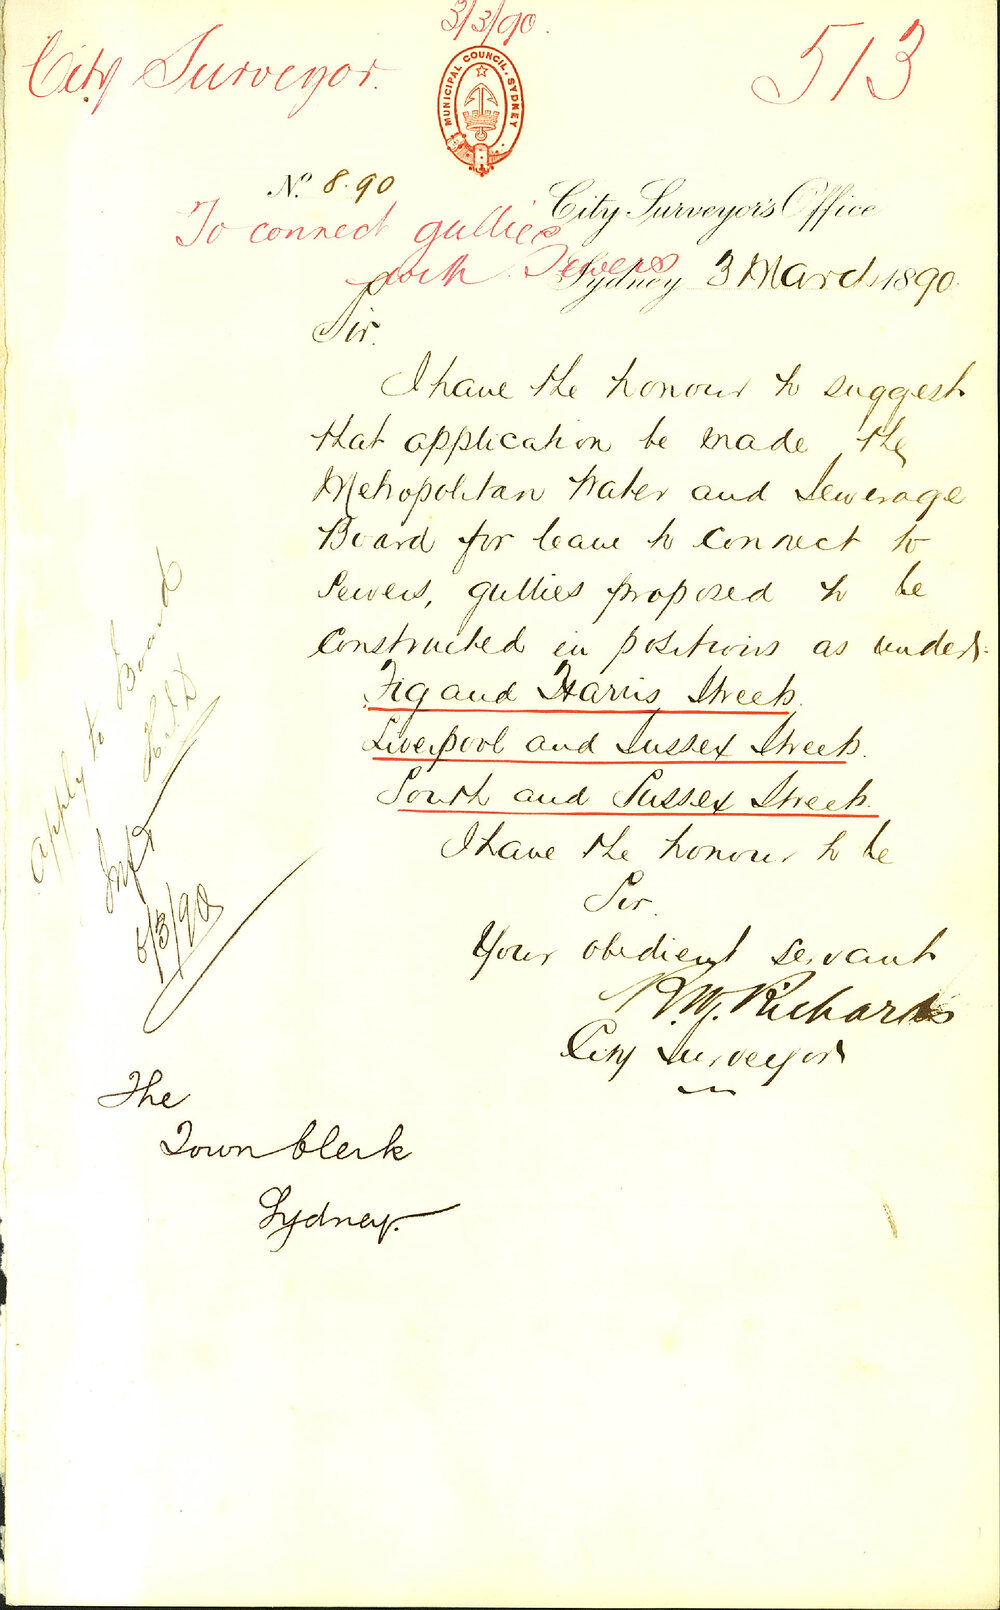 3/3/90.
City Surveyor.
513
MUNICIPAL COUNCIL. SYDNEY
No. 8.90
City Surveyor's Office
To connect gullies
with Sewers
Sydney 3 March 1890
Sir.
I have the honour to suggest
that application be made the
Metropolitan Water and Sewerage
Board for leave to connect to
Sewers, gullies proposed to be
constructed in positions as under:
Fig and Harris Streets.
Liverpool and Sussex Streets.
South and Sussex Streets.
I have the honour to be
Sir.
Your obedient servant
R.W. Richards
City Surveyor
The
Town Clerk
Sydney.
Apply to Board
6/3/90